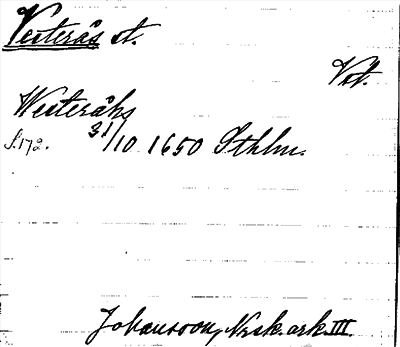 Västerås st.
Vst.
Westeråhs
S. 172. 31/10 1650 Sthlm.
Johansson, Norsk. ark. III.